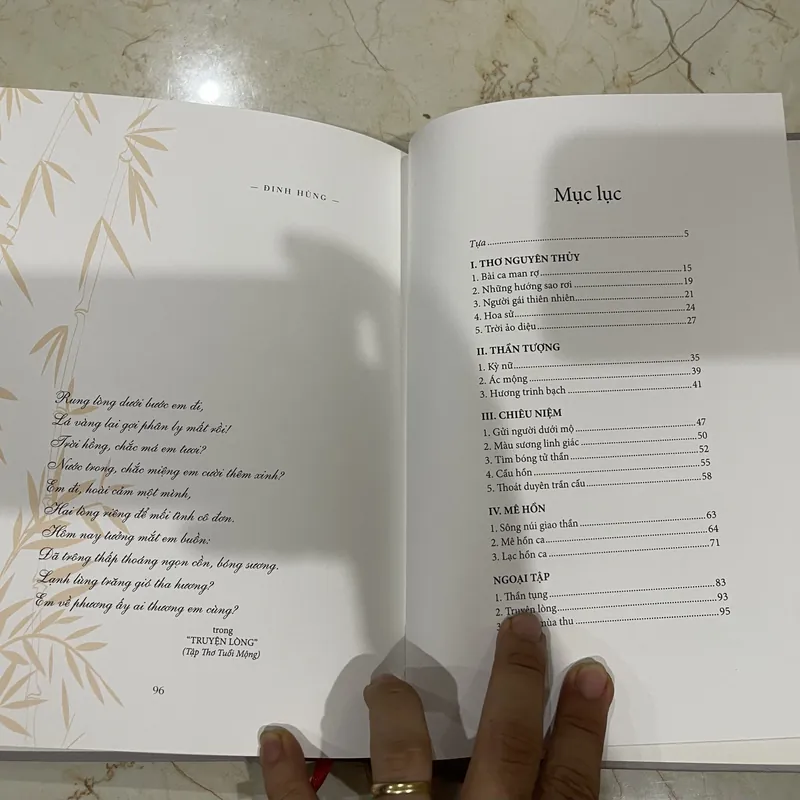 — ĐINH HÙNG —
Rung lòng dưới bước em đi,
Lá vàng lại gợi phân ly mất rồi!
Trời hồng, chắc má em tươi?
Nước trong, chắc miệng em cười thêm xinh?
Em đi, hoài cảm một mình,
Hai lòng riêng để mối tình cô đơn.
Hôm nay tưởng mắt em buồn:
Đã trông thấp thoáng ngọn cồn, bóng sương.
Lạnh lùng trăng gió tha hương?
Em về phương ấy ai thương em cùng?
trong
"TRUYỆN LÒNG"
(Tập Thơ Tuổi Mộng)
96
Mục lục
Tựa ........ 5
I. THƠ NGUYÊN THỦY
1. Bài ca man rợ ........ 15
2. Những hướng sao rơi ........ 19
3. Người gái thiên nhiên ........ 21
4. Hoa sử ........ 24
5. Trời ảo diệu ........ 27
II. THẦN TƯỢNG
1. Kỳ nữ ........ 35
2. Ác mộng ........ 39
3. Hương trinh bạch ........ 41
III. CHIÊU NIỆM
1. Gửi người dưới mộ ........ 47
2. Màu sương linh giác ........ 50
3. Tìm bóng tử thần ........ 52
4. Cầu hồn ........ 55
5. Thoát duyên trần cấu ........ 58
IV. MÊ HỒN
1. Sông núi giao thần ........ 63
2. Mê hồn ca ........ 64
3. Lạc hồn ca ........ 71
NGOẠI TẬP
1. Thần tụng ........ 83
2. Truyện lòng ........ 93
mùa thu ........ 95